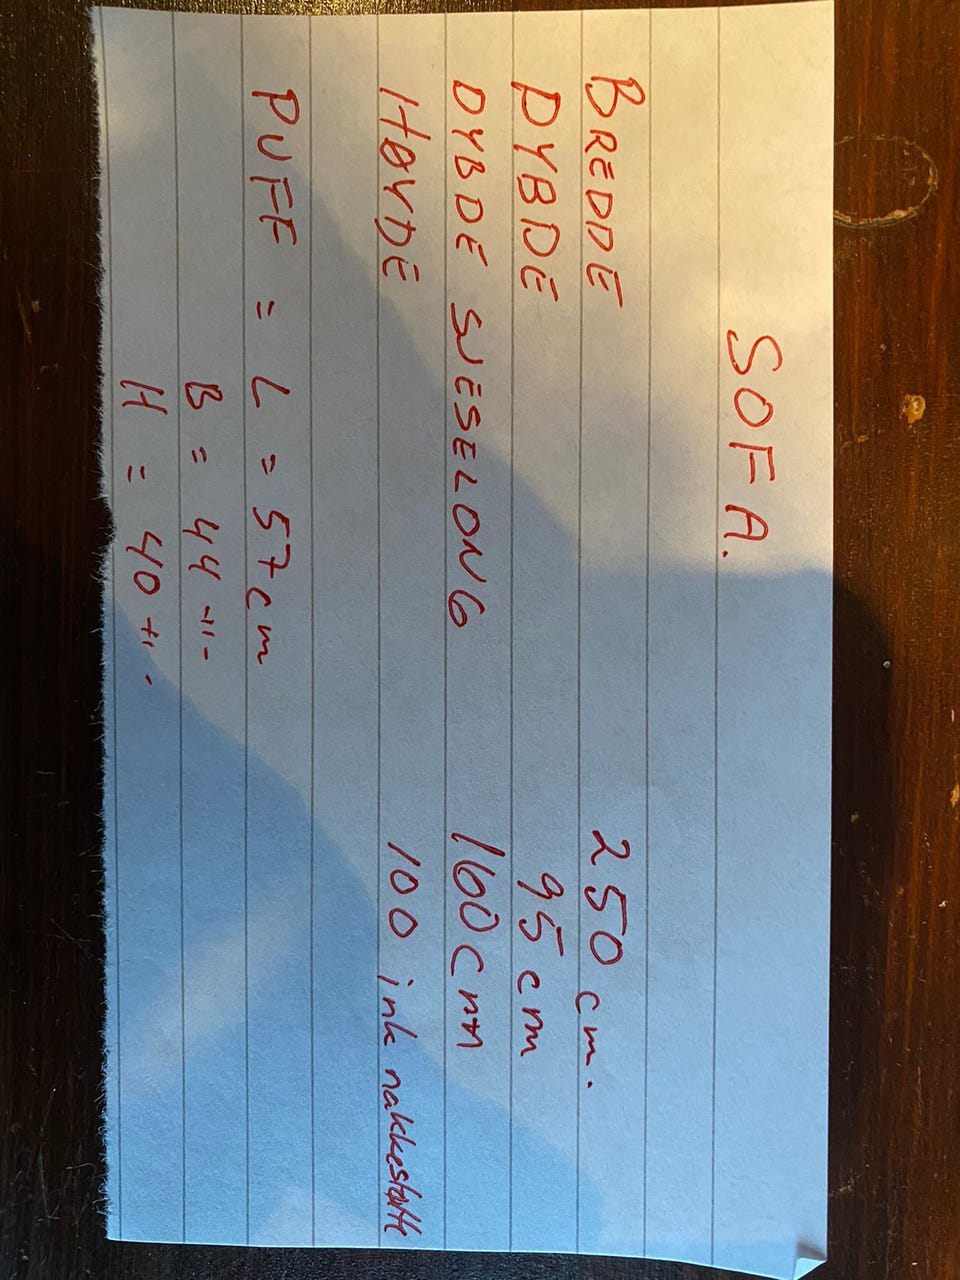 SOFA.
BREDDE 250 cm.
DYBDE 95 cm
DYBDE SJESELONG 160 cm
HØYDE 100 ink nakkestøtte
PUFF = L = 57 cm
B = 44 -"-
H = 40 -"-